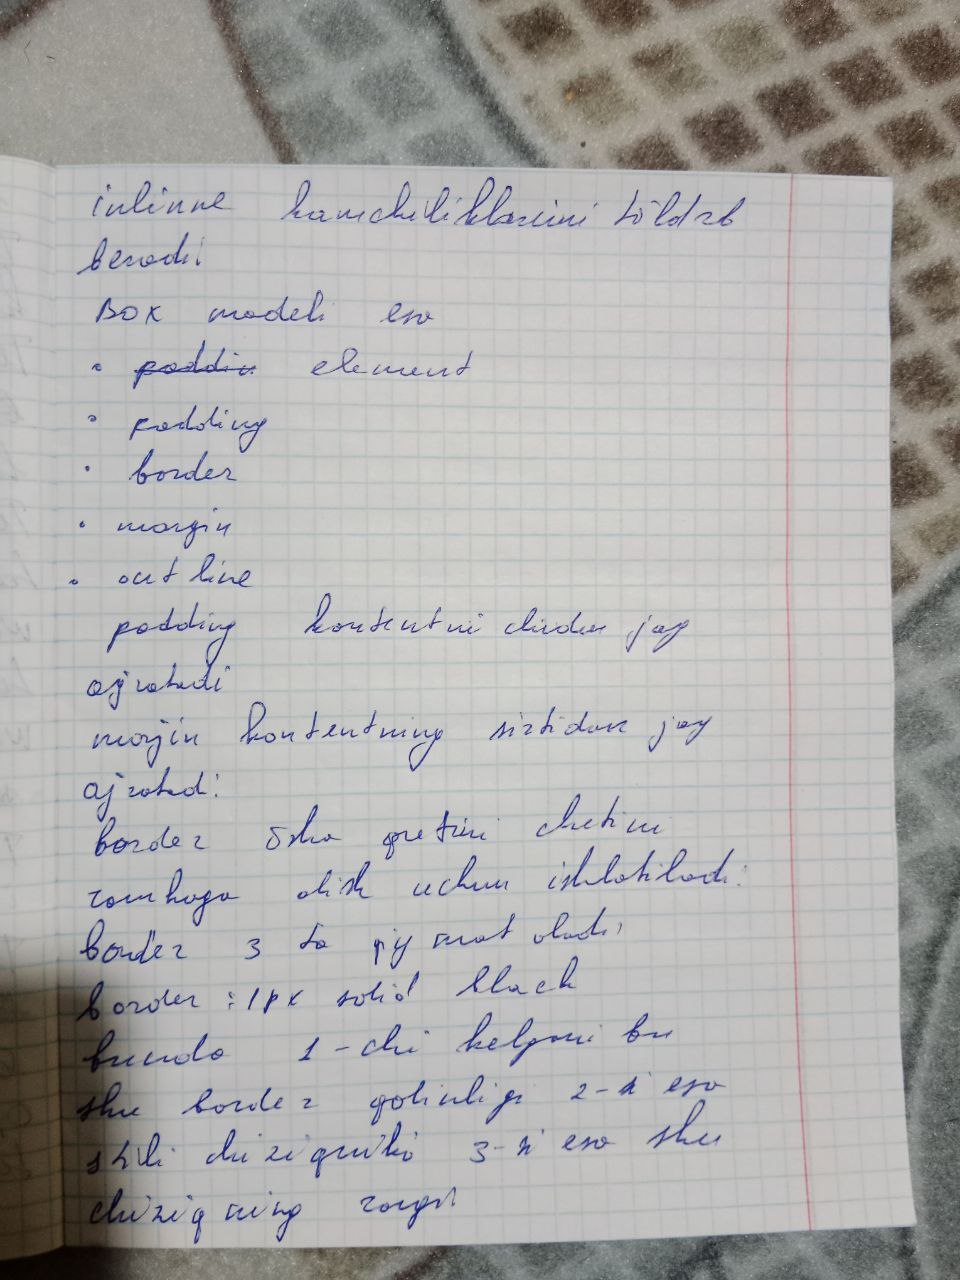 inlinne kamchiliklarini töldrb
beradi
Box modeli esa
• paddin element
• padding
• border
• margin
• out line
padding kontentni ichidan joy
ajratadi
marjin kontentning sirtidan joy
ajratadi
border õsha qutini chetini
ramkaga olish uchun ishlatiladi
border 3 ta qiymat oladi
border : 1px solid black
bunda 1-chi kelgani bu
shu border qalinligi 2-si esa
stili chiziqniki 3-si esa shu
chiziqning rangi